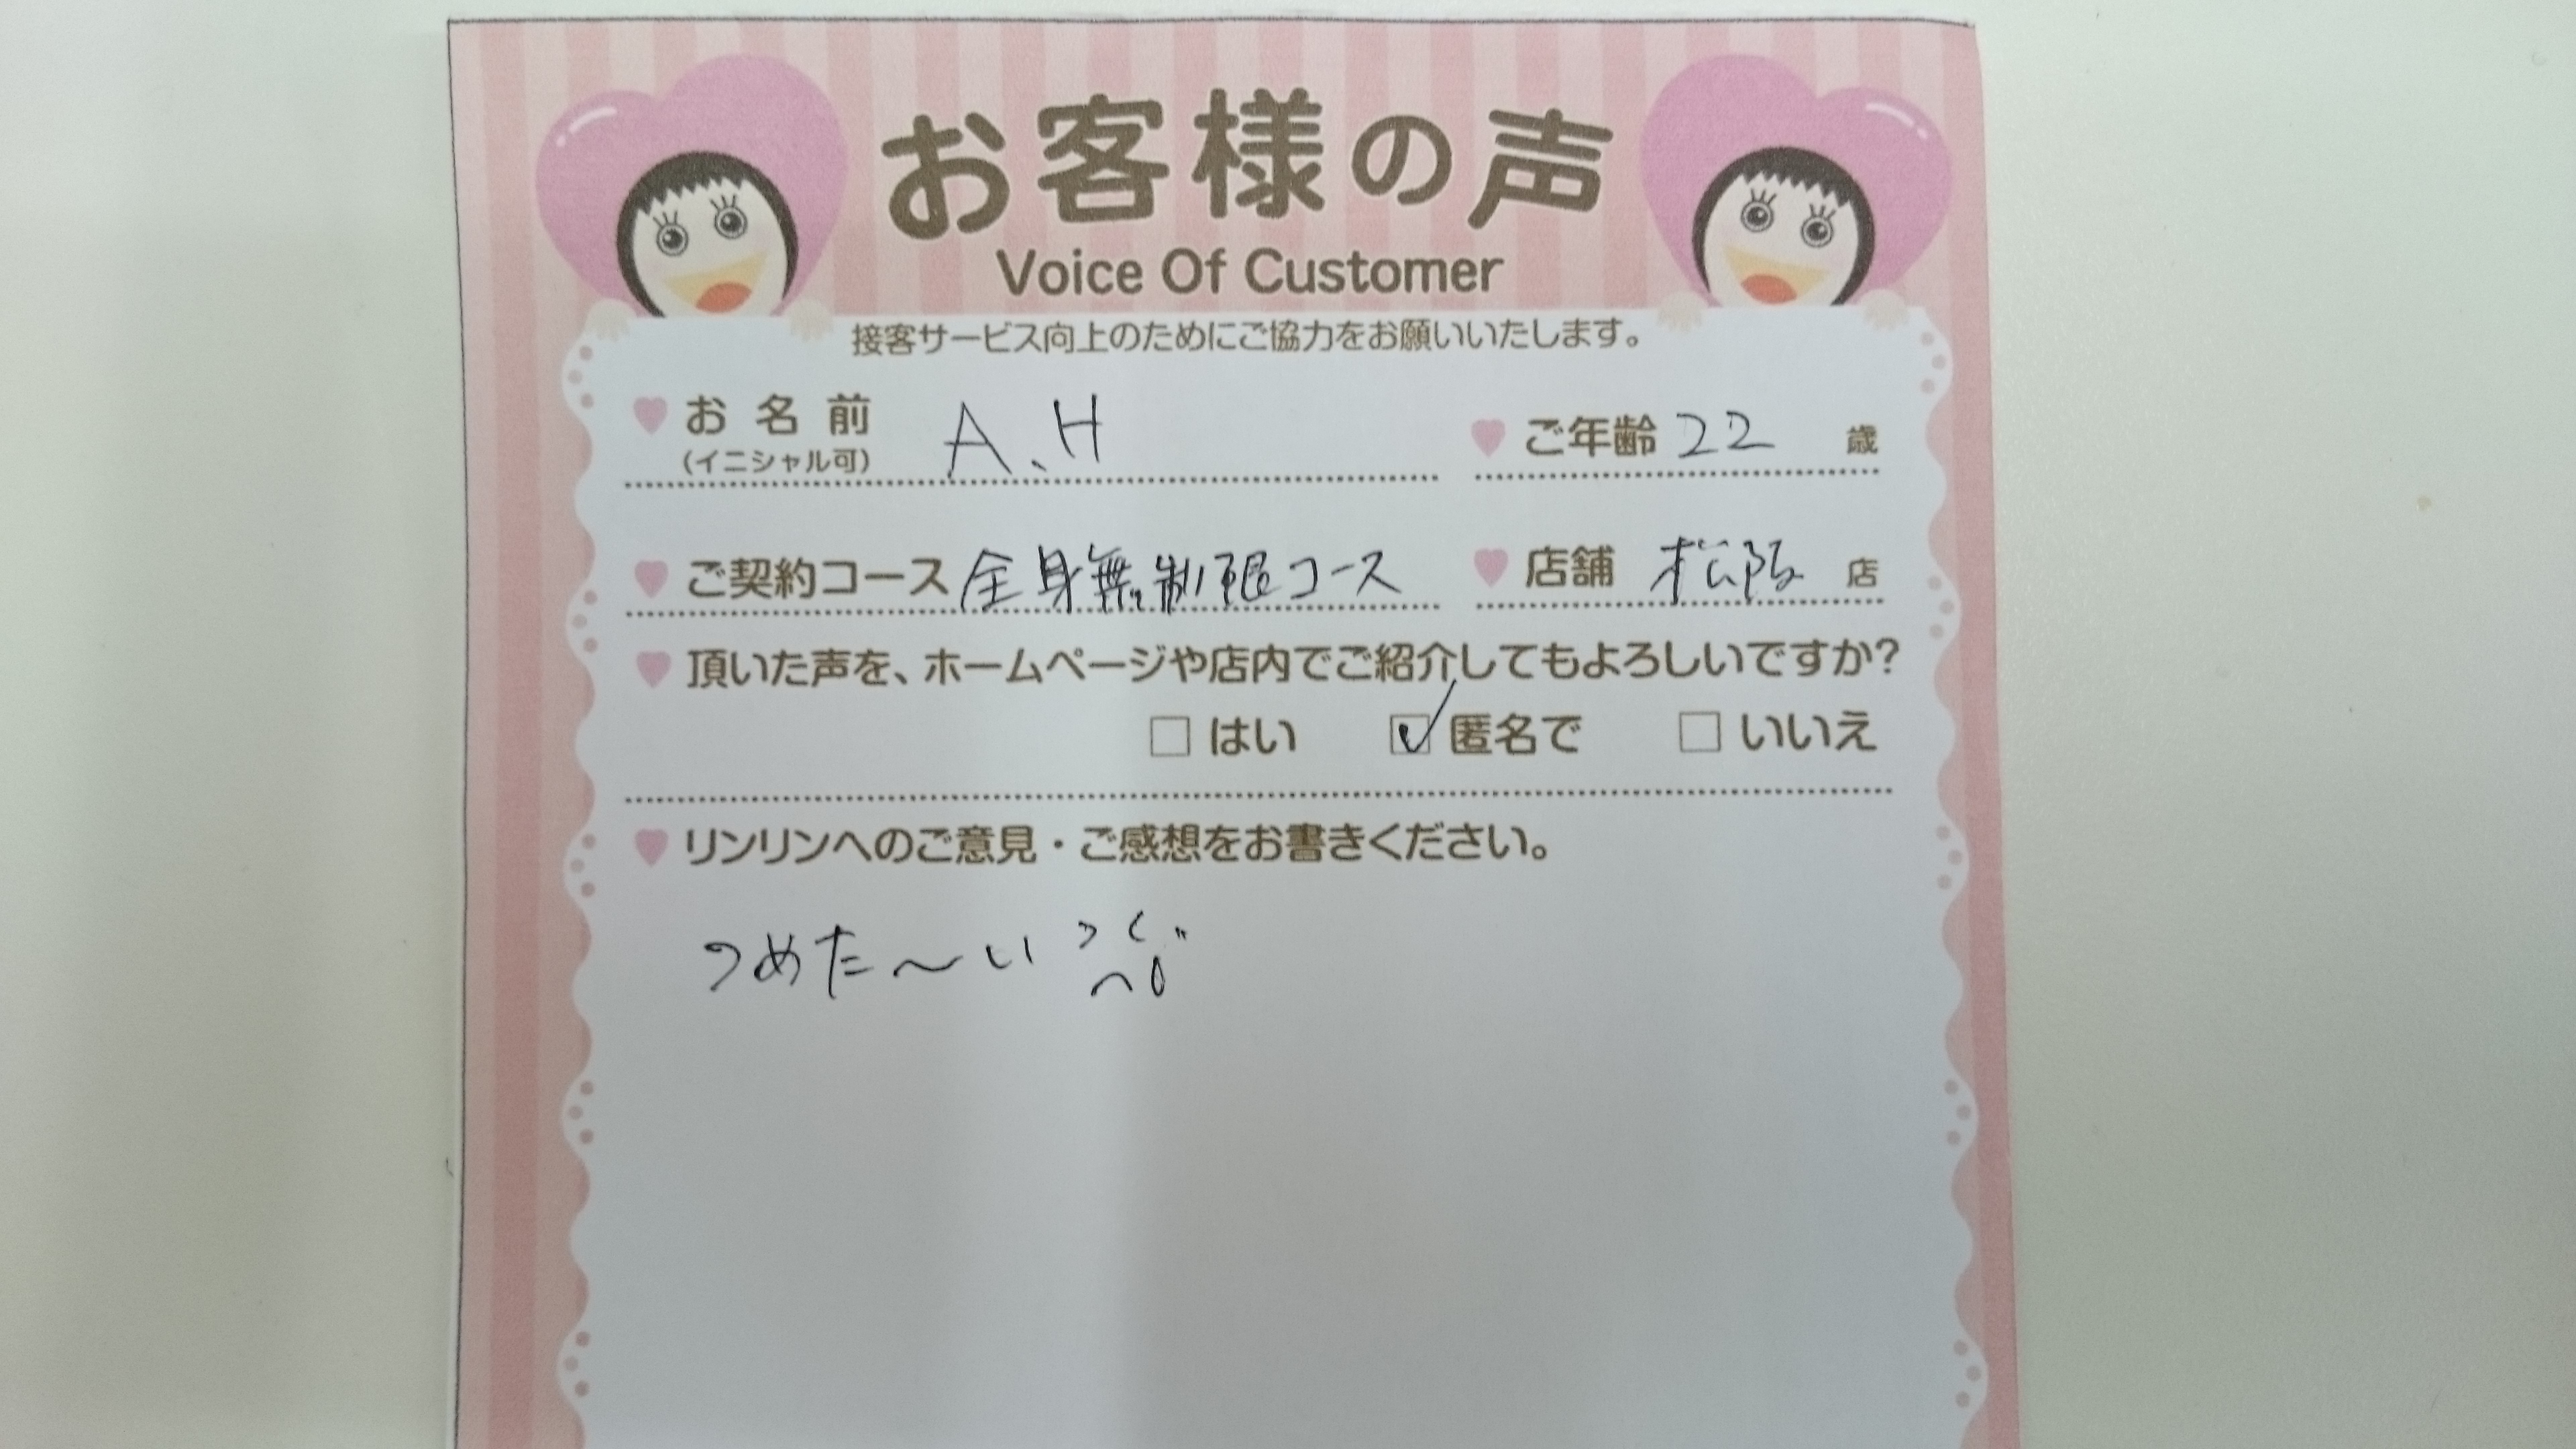 お客様の声
Voice Of Customer
接客サービス向上のためにご協力をお願いいたします。
お名前 A.H ご年齢 22 歳
(イニシャル可)
ご契約コース 全身無制限コース 店舗 松阪 店
頂いた声を、ホームページや店内でご紹介してもよろしいですか?
□ はい ☑ 匿名で □ いいえ
リンリンへのご意見・ご感想をお書きください。
つめた〜い